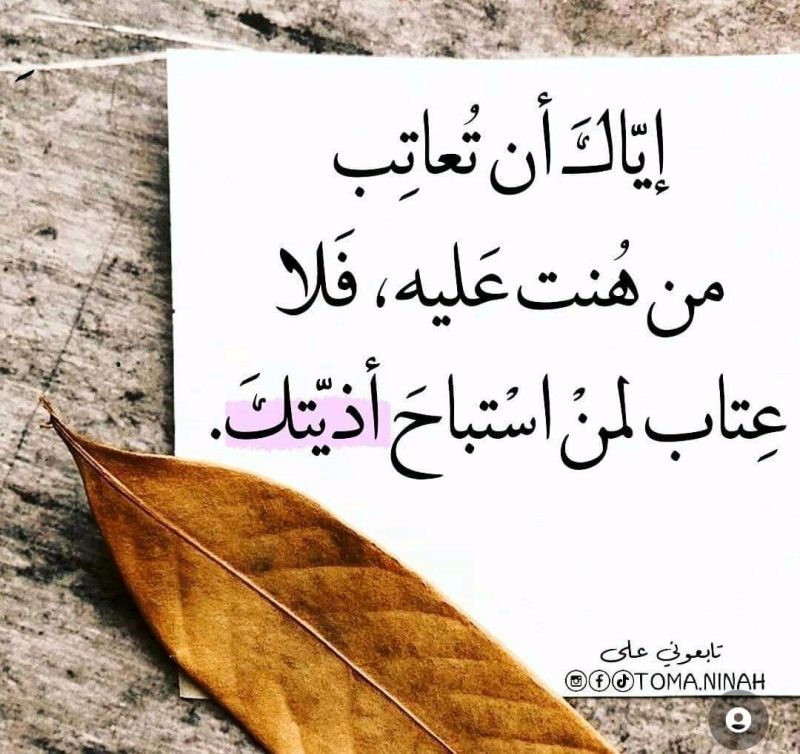 إيّاكَ أن تُعاتِب
من هُنت عَليه، فَلا
عِتاب لمنْ اسْتباحَ أذيّتكَ.
تابعوني على
TOMA.NINAH